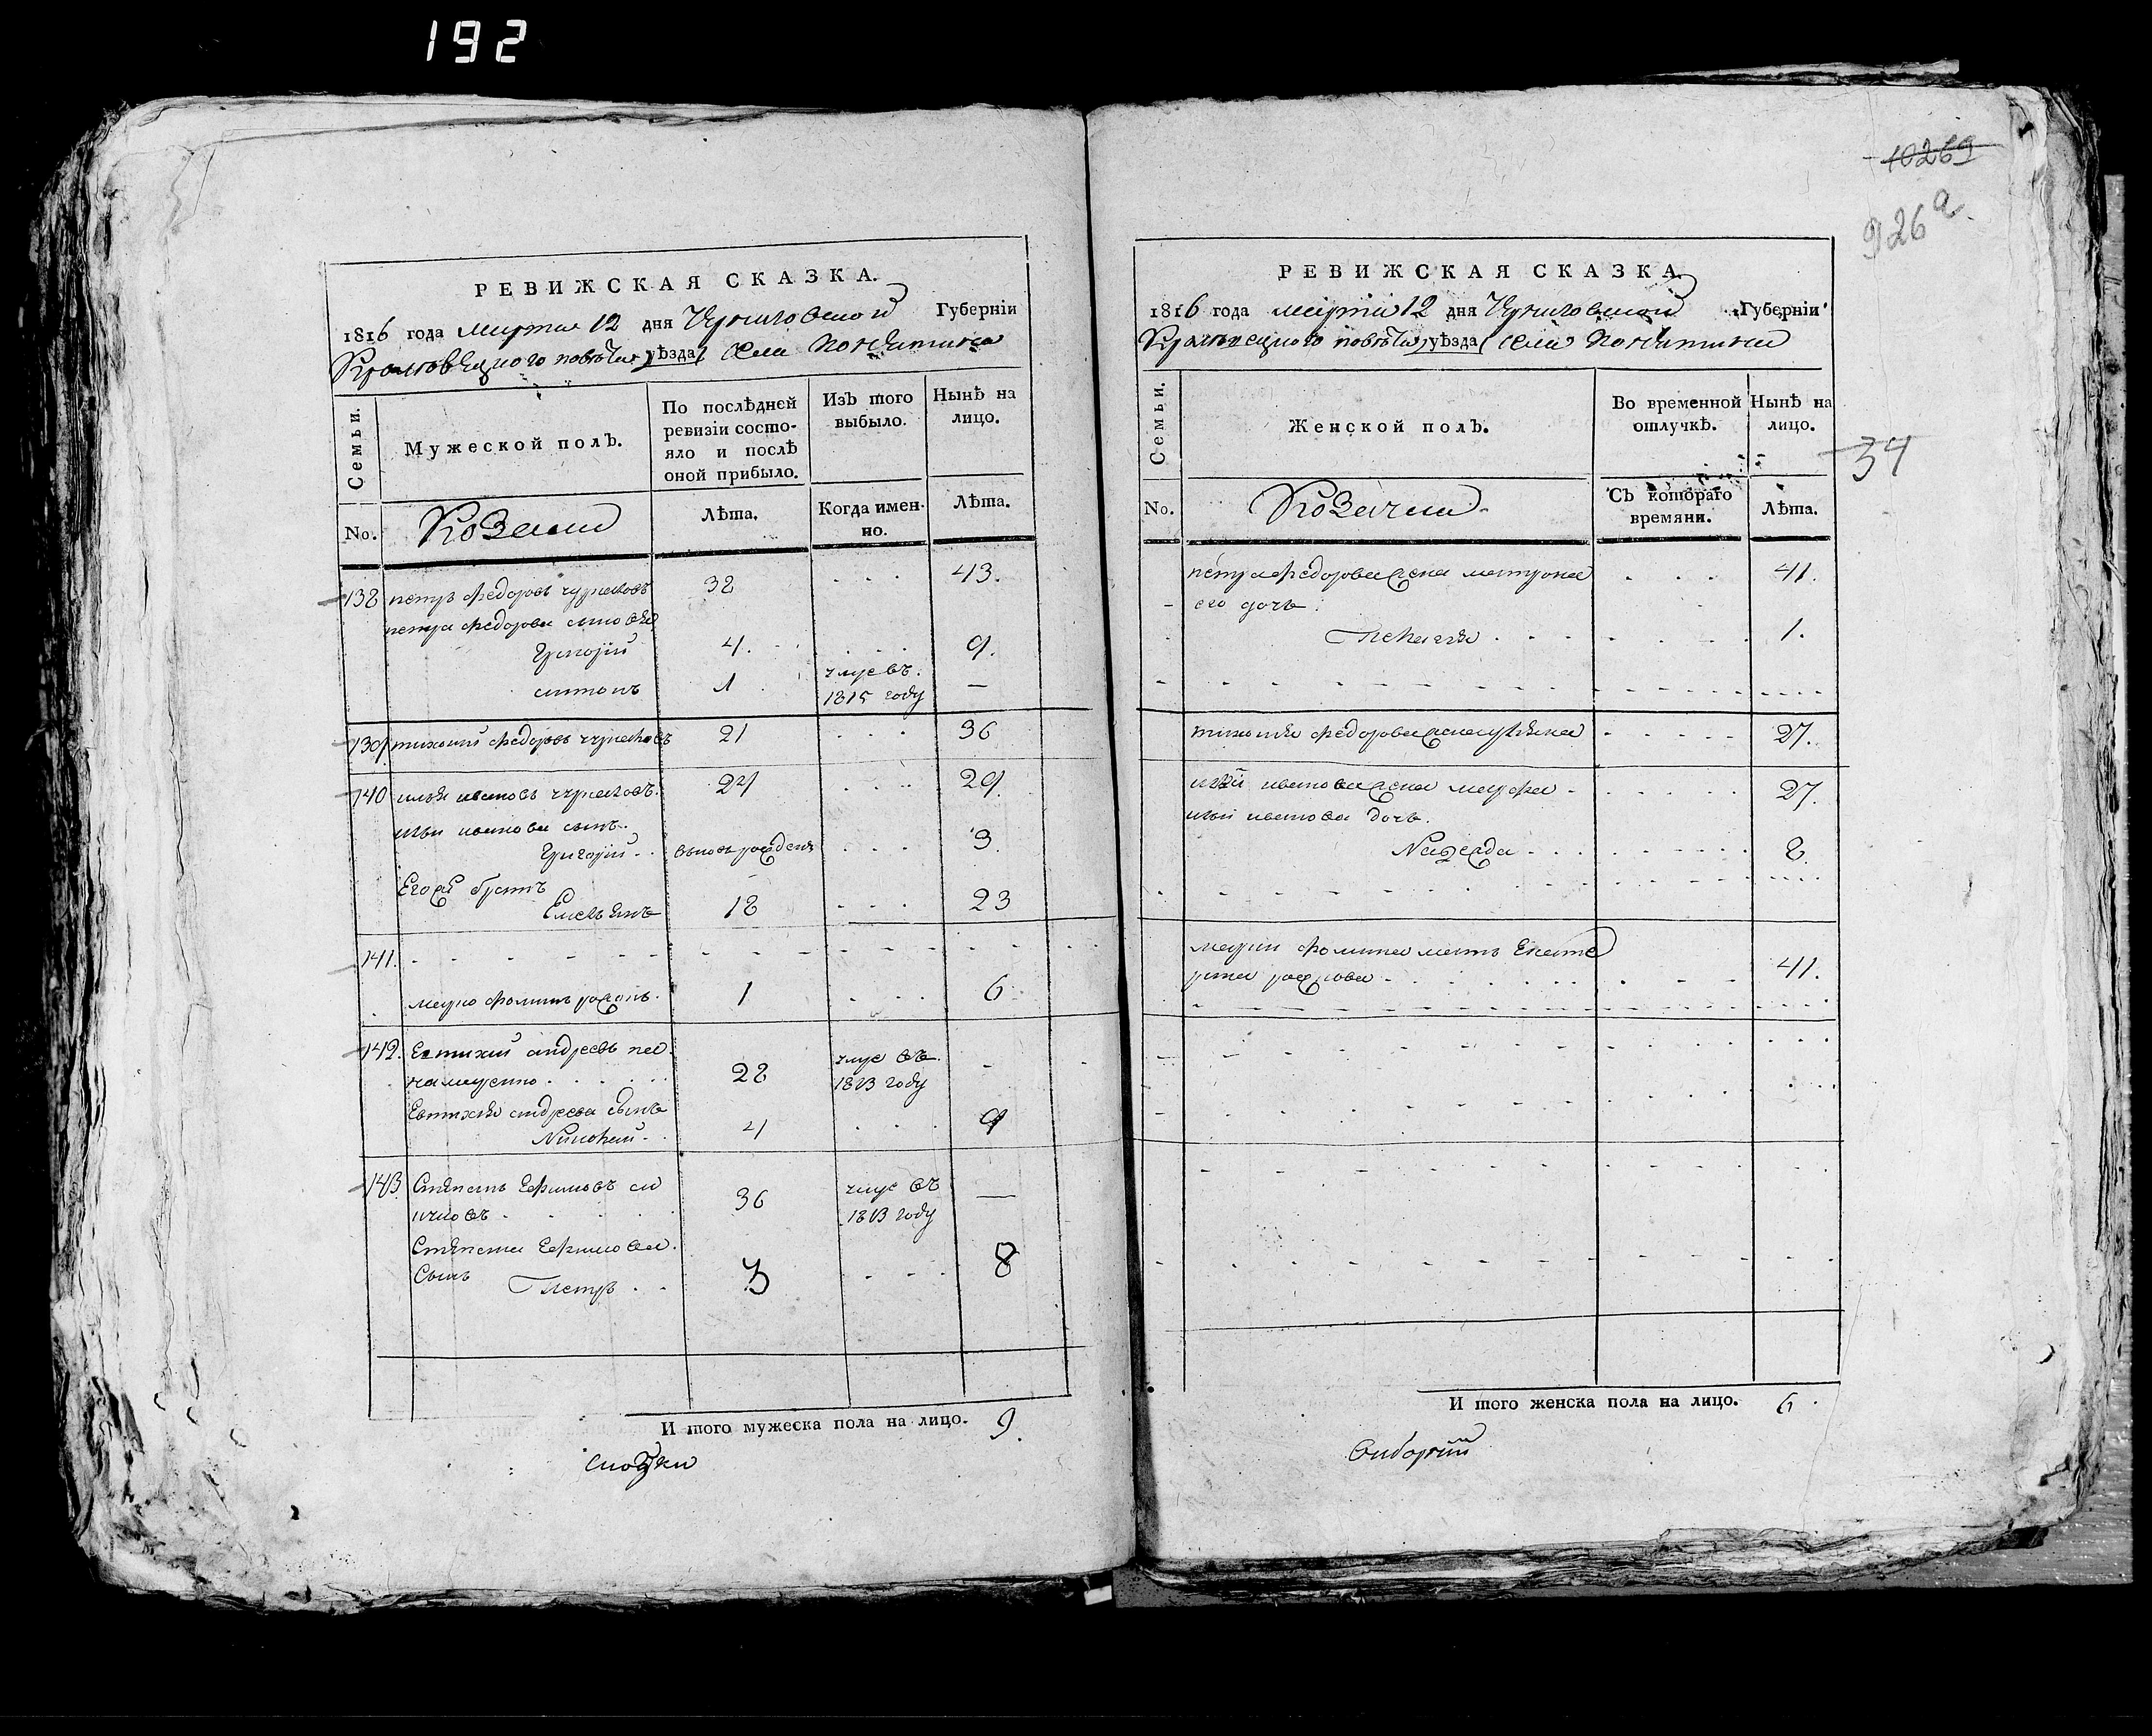 192
РЕВИЖСКАЯ СКАЗКА.
1816 года марта 12 дня Черниговской Губерніи
Кролевецкого повѣта уѣзда села
Семьи.
Мужеской полЪ.
По послѣдней ревизіи состо-
яло и послѣ
оной прибыло.
ИзЪ того
выбыло.
Нынѣ на
лицо.
No.
Козаки
Лѣта.
Когда имен-
но.
Лѣта.
138 петръ федоровъ 32 . . . 43.
петра федорова сыновя
Григорій 4. . . . 9.
антонъ 1 умре въ 1815 году —
139 тихоній федоровъ 21 . . . 36
140 илья ивановъ 24 . . . 29.
ильи иванова сынъ
Григорій вновь рожденъ . . . 3.
Его же братъ
Емельянъ 18 . . . 23
141. - - - - -
марко фоминъ 1 . . . 6
142. Евтихий андреевъ 28 умре въ 1813 году -
Евтихия андреева сынъ
Николай 4 . . . 9
143. Стѣпанъ Ефимовъ 36 умре въ 1813 году —
Стѣпана Ефимова
Сынъ Петръ 3 . . . 8
И того мужеска пола на лицо. 9.
10269
926а.
РЕВИЖСКАЯ СКАЗКА
1816 года марта 12 дня Черниговской Губерніи
Кролевецкого повѣта уѣзда села
34
Семьи.
Женской полЪ.
Во временной
отлучкѣ.
Нынѣ на
лицо.
No.
Козачки
СЪ котораго
времяни.
Лѣта.
петра федорова жена матрона . . . 41.
его дочь
Пелагея . . . 1.
тихония федорова жена 27.
ильи иванова жена марфа 27.
ильи иванова дочь
Надежда 8.
марки фомина мать Екате
рина 41.
И того женска пола на лицо. 6.